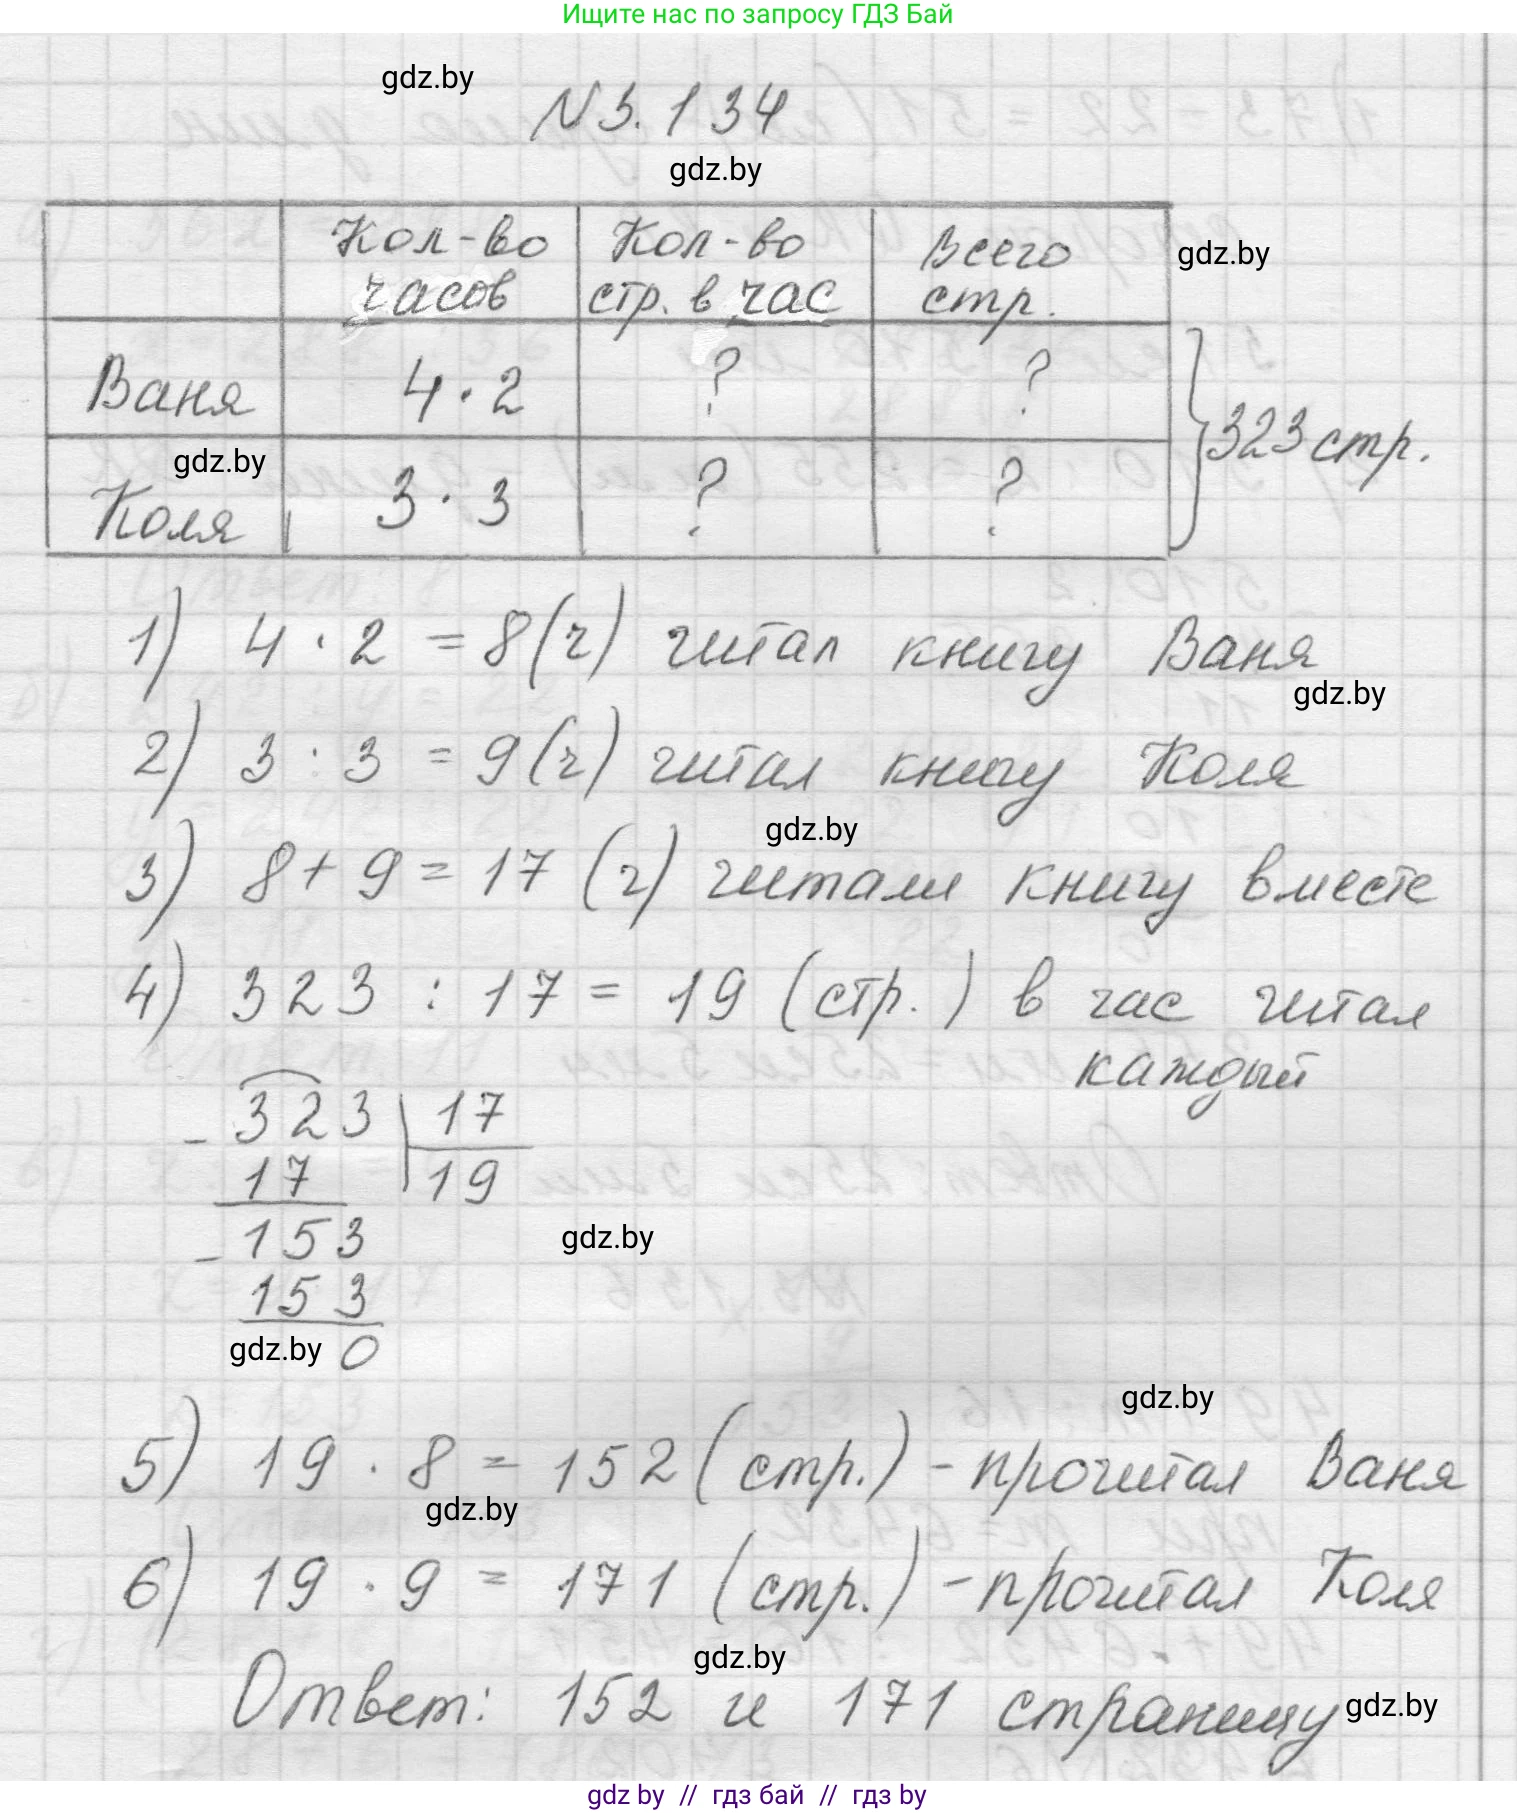 Ищите нас по запросу ГДЗ Бай
gdz.by
N 3.134
gdz.by
Кол-во часов
Кол-во стр. в час
Всего стр.
gdz.by
Ваня 4 · 2 ? ?
323 стр.
gdz.by
Коля 3 · 3 ? ?
1) 4 · 2 = 8 (ч) читал книгу Ваня
gdz.by
2) 3 · 3 = 9 (ч) читал книгу Коля
gdz.by
3) 8 + 9 = 17 (ч) читали книгу вместе
4) 323 : 17 = 19 (стр.) в час читал
каждый
- 323 | 17
17 | 19
- 153
gdz.by
153
gdz.by
0
gdz.by
5) 19 · 8 = 152 (стр.) - прочитал Ваня
gdz.by
6) 19 · 9 = 171 (стр.) - прочитал Коля
gdz.by
Ответ: 152 и 171 страницу
gdz.by
gdz by // гдз бай // гдз by